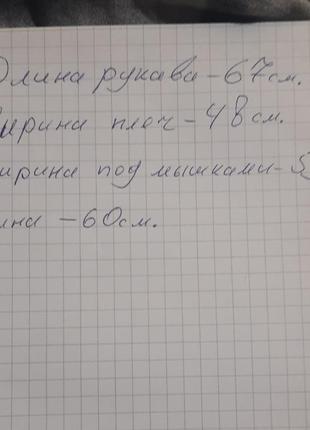 Длина рукава - 67см.
ирина плеч - 48см.
ирина под мышками - 5
ина - 60см.